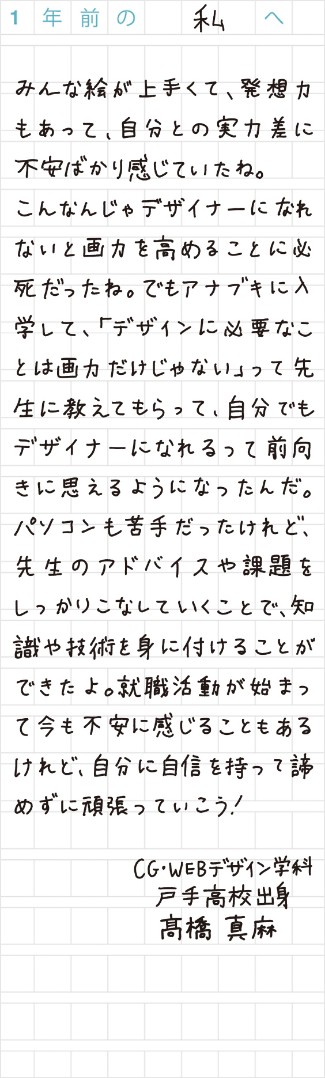 1年前の 私 へ
みんな絵が上手くて、発想力
もあって、自分との実力差に
不安ばかり感じていたね。
こんなんじゃデザイナーになれ
ないと画力を高めることに必
死だったね。でもアナブキに入
学して、「デザインに必要なこ
とは画力だけじゃない」って先
生に教えてもらって、自分でも
デザイナーになれるって前向
きに思えるようになったんだ。
パソコンも苦手だったけれど、
先生のアドバイスや課題を
しっかりこなしていくことで、知
識や技術を身に付けることが
できたよ。就職活動が始まっ
て今も不安に感じることもある
けれど、自分に自信を持って諦
めずに頑張っていこう!
CG・WEBデザイン学科
戸手高校出身
髙橋 真麻